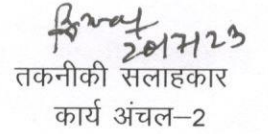 20/7/23
तकनीकी सलाहकार
कार्य अंचल–2